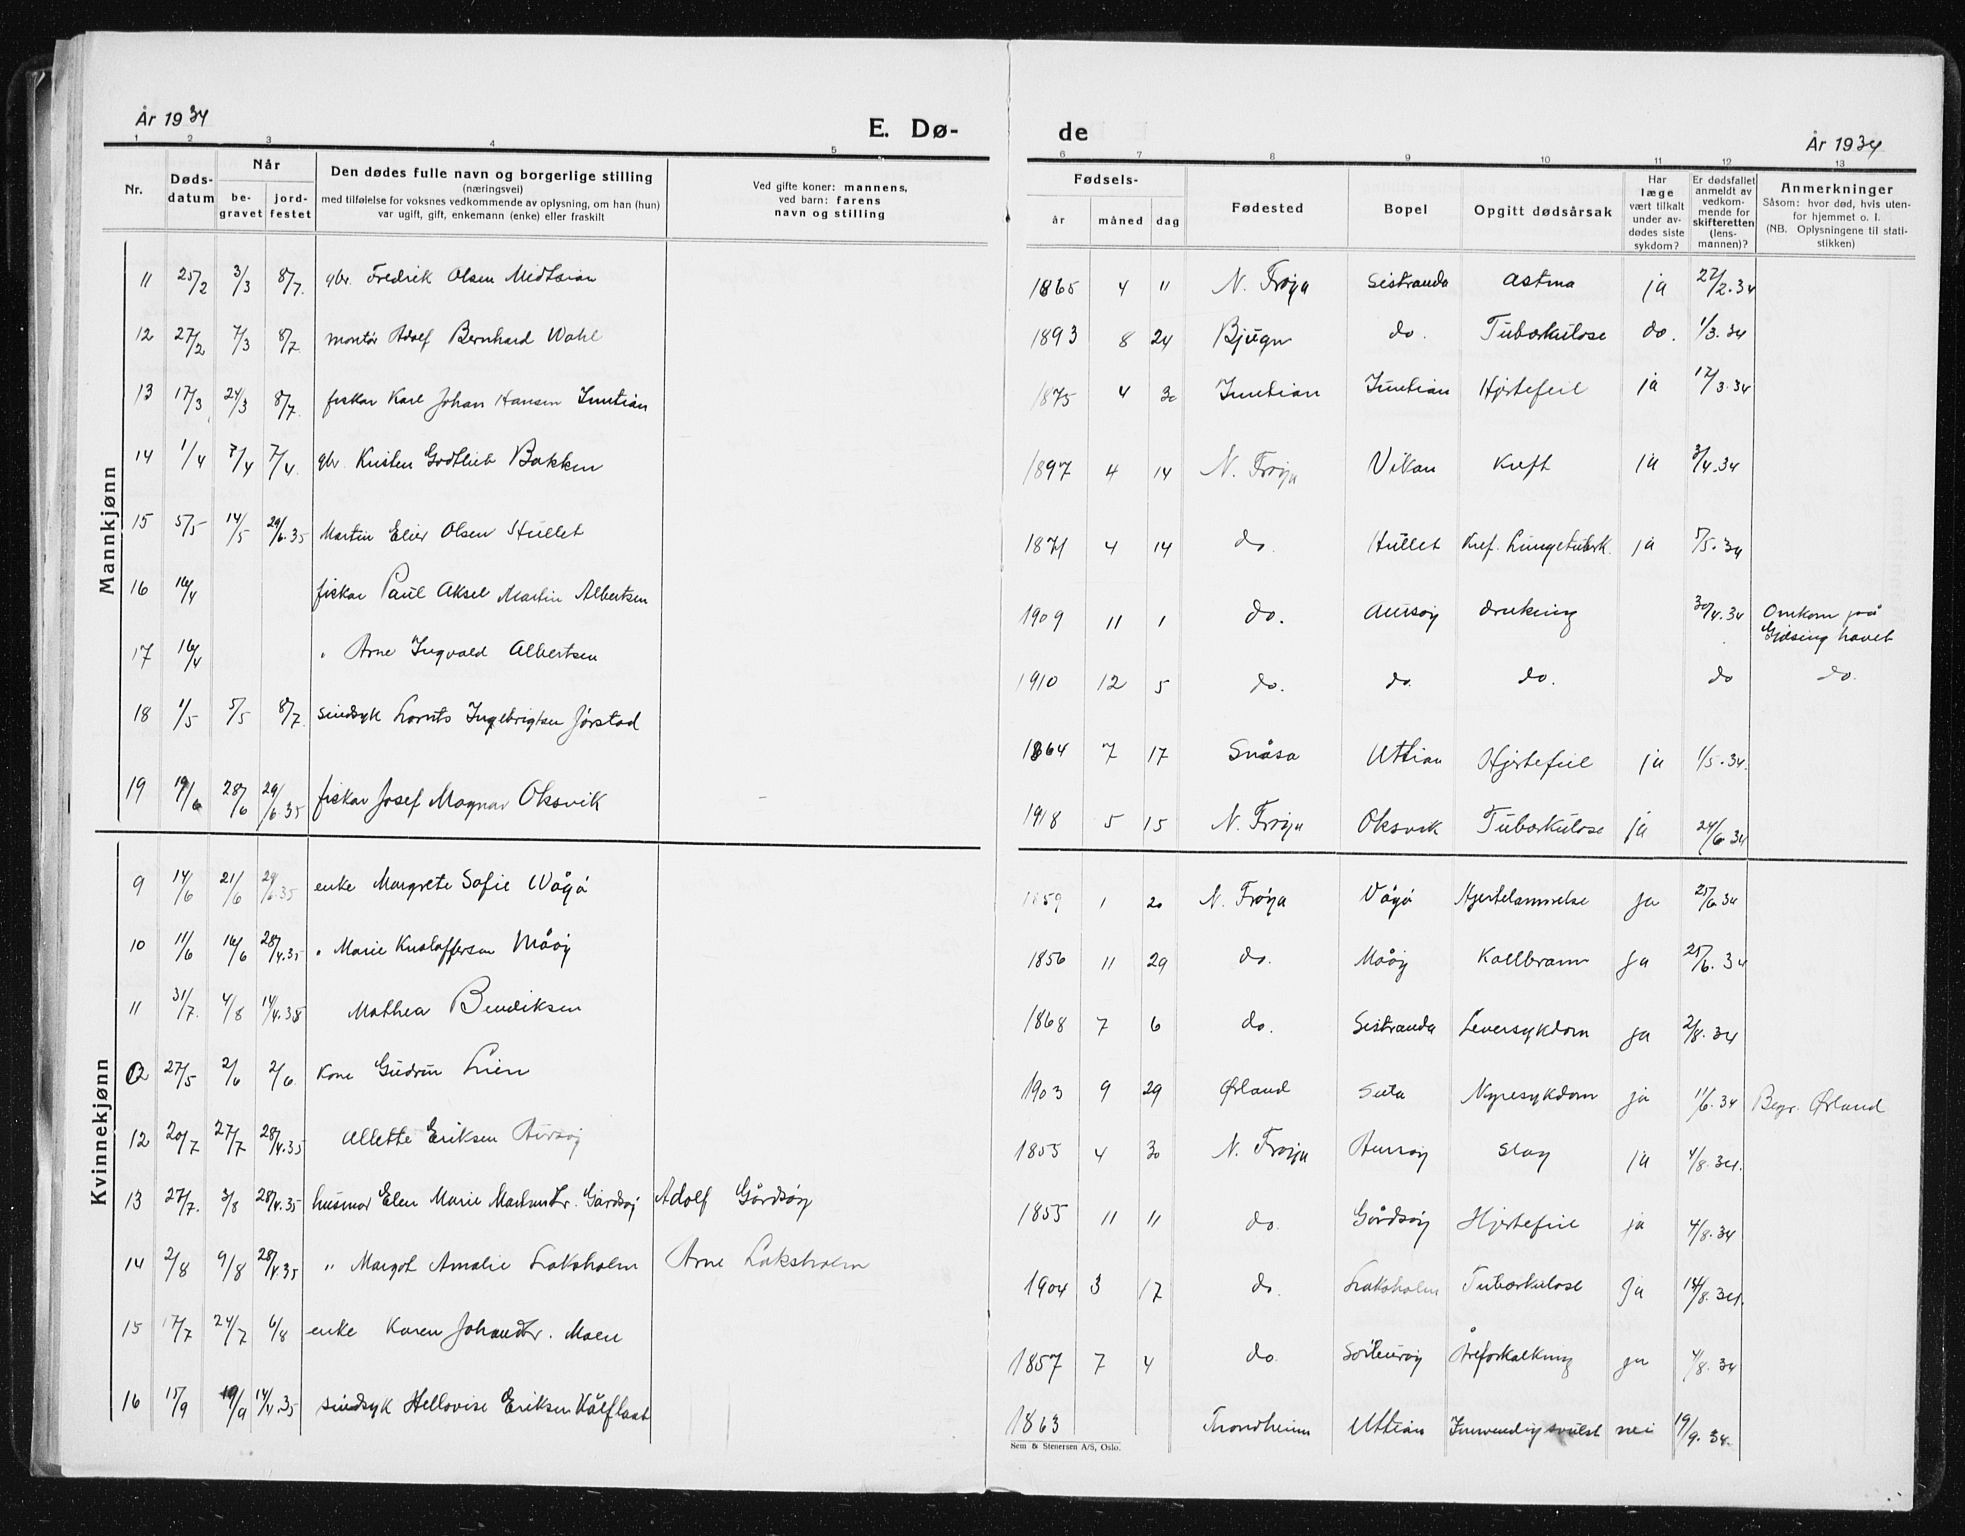 År 1934
E. Dø-
de
År 1934
1 2 3 4 5 6 7 8 9 10 11 12 13
Nr.
Døds-
datum
Når
be-
gravet
jord-
festet
Den dødes fulle navn og borgerlige stilling
(næringsvei)
med tilføielse for voksnes vedkommende av oplysning, om han (hun)
var ugift, gift, enkemann (enke) eller fraskilt
Ved gifte koner: mannens,
ved barn: farens
navn og stilling
Fødsels-
år måned dag
Fødested
Bopel
Opgitt dødsårsak
Har
læge
vært tilkalt
under av-
dødes siste
sykdom?
Er dødsfallet
anmeldt av
vedkom-
mende for
skifteretten
(lens-
mannen)?
Anmerkninger
Såsom: hvor død, hvis uten-
for hjemmet o. l.
(NB. Oplysningene til stati-
stikken)
Mannkjønn
11 25/2 3/3 8/7. gbr. Fredrik Olsen 1865 4 11 N. Frøya Sistranda Astma ja 27/2.34
12 27/2 7/3 8/7. montør Adolf Bernhard Wahl 1893 8 24 Bjugn do. Tuberkulose do. 1/3.34
13 17/3 24/3 8/7. fisker Karl Johan Hansen Inntian 1875 4 30 Inntian Inntian Hjertefeil ja 17/3.34
14 1/4 7/4 7/4. gbr. Kristen Godtlieb Bakken 1897 4 14 N. Frøya Vikan Kreft ja 3/4.34
15 5/5 14/5 29/6.35 Martin Elier Olsen Hullet 1871 4 14 do. Hullet Kref. Lungetuberk. ja 7/5.34
16 16/4 fisker Paul Aksel Martin Albertsen 1909 11 1 do. Aursøy drukning 30/4.34 Omkom på
havet
17 16/4 " Arne Ingvald Albertsen 1910 12 5 do. do. do. do do.
18 1/5 5/5 8/7. sindsyk Lornts Ingebrigtsen Jørstad 1864 7 17 Snåsa Uttian Hjertefeil ja 1/5.34.
19 19/6 28/6 29/6.35 fisker Josef Magnar Oksvik 1918 5 15 N. Frøya Oksvik Tuberkulose ja 24/6 34
Kvinnekjønn
9 14/6 21/6 29/6.35 enke Margrete Sofie Vågø 1859 1 20 N. Frøya Vågø Hjertelammelse ja 25/6.34
10 11/6 16/6 28/4.35 " Marie Måøy 1856 11 29 do. Måøy Kallbrann ja 25/6.34
11 31/7. 4/8 14/4.35 Mathea Bendiksen 1868 7 6 do. Sistranda Leversykdom ja 2/8.34
02 27/5 2/6 2/6. Kone Gudrun Lien 1903 9 29 Ørland Nyresykdom ja 11/6.34 Begr. Ørland
12 20/7 27/7 28/4.35 Allette Eriksen Aursøy 1855 4 30 N. Frøya Aursøy Slag ja 4/8.34.
13 27/7. 3/8 28/4.35 husmor Elen Marie Martinsdr. Gårdsøy Adolf Gårdsøy 1855 11 11 do. Gårdsøy Hjertefeil ja 4/8.34
14 2/8 9/8 28/4.35 " Margot Amalie Laksholm Arne Laksholm 1904 3 17 do. Laksholm Tuberkulose Ja 14/8.34.
15 17/7 24/7 6/8 enke Karen Johansdr. Moen 1857 7 4 do. Sørburøy Åreforkalkning ja 4/8.34
16 15/9 19/9 14/4.35 sindsyk Hellovise Eriksen Kålflaat 1863 Trondheim Uttian Innvendig svulst nei 19/9.34.
Sem & Stenersen A/S, Oslo.